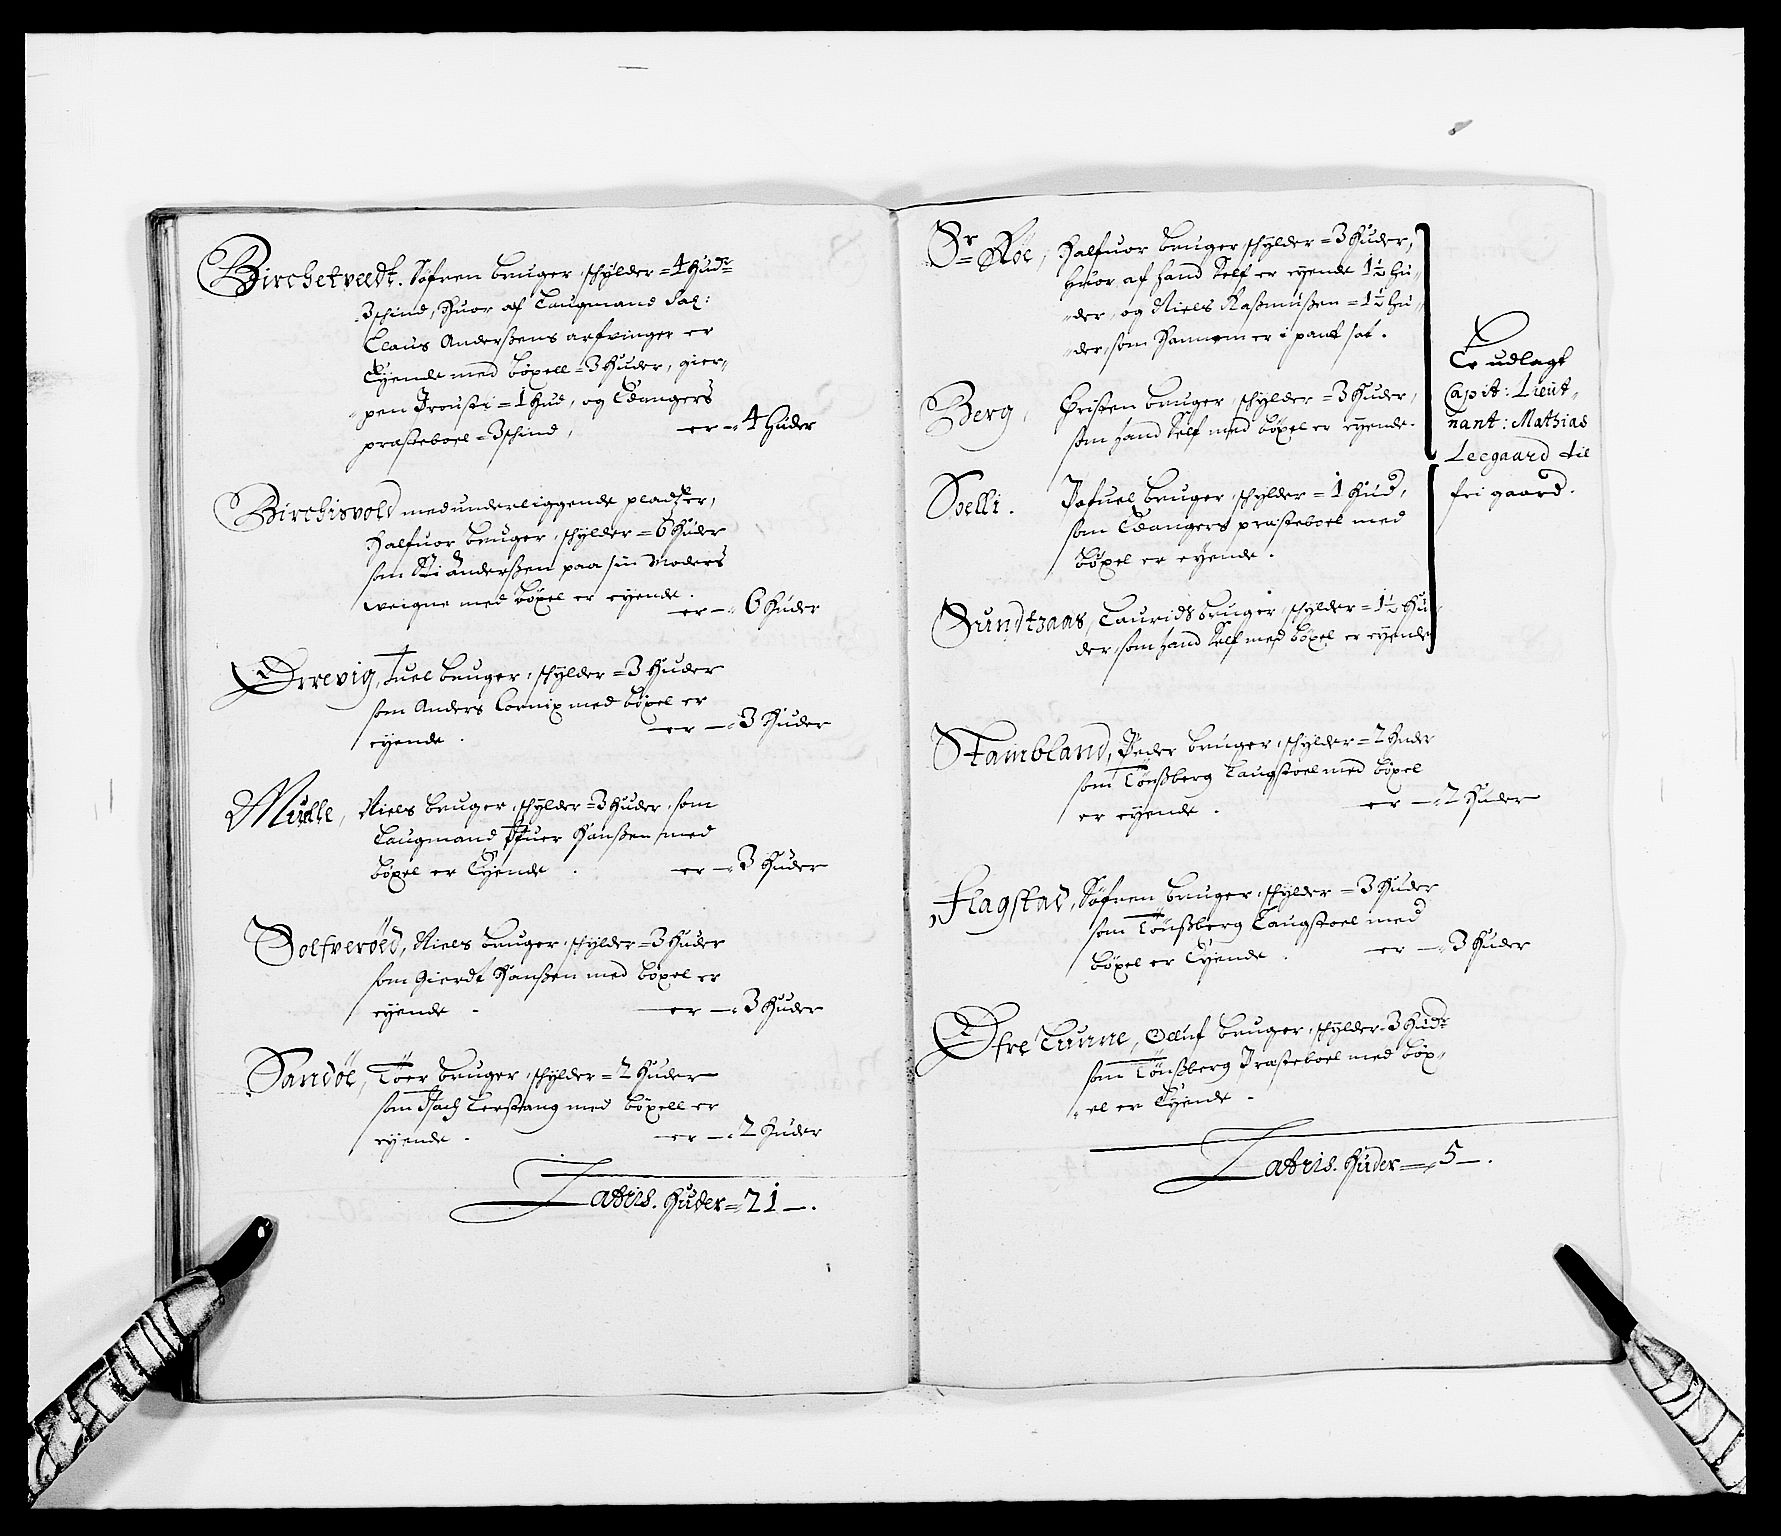 Birchetveedt. Søfren bruger, schylder = 4 Hudr
3 schind, Huor af Laugmand Sal:
Claus Anderßens arfvinger er
Eyende med böxell = 3 Huder, gier,,
pen Prousti = 1 Hud, og Edangers
præsteboel = 3 schind, er —: 4 Huder
Birchisvold med underliggende pladtzer,
Halfuor bruger, schylder = 6 Huder
som Anderßen paa sin Moders
weigne med böxel er eyende. er —: 6 Huder
Orrevig, Juel bruger, schylder = 3 Huder
som Anders Cornix med böxel er
eyende. er —: 3 Huder
Mulle, Niels bruger, schylder = 3 Huder, som
Laugmand Ifuer Hanßen med
böxel er Eyende. er —: 3 Huder
Solfveröed, Niels bruger, schylder = 3 Huder
som Gierdt Hanßen med böxel er
eyende. er —: 3 Huder
Sandöe, Töer bruger, schylder = 2 Huder
som Isach Lerstang med böxell er
eyende. er —: 2 Huder
Latris. Huder = 21 —.
Sr Röe, Halfuor bruger, schylder = 3 Huder,
Huor af hand self er eyende 1½ hu,,
,,der, og Niels Raßmußen = 1½ hu,,
,,der, som Hannem er i pant sat.
Berg, Christen bruger, schylder = 3 Huder,
som hand self med böxel er eyende.
Soelli. Pofuel bruger, schylder = 1 Hud,
som Edangers præsteboel med
böxel er eyende.
Sundtzaas, Lauridz bruger, schylder = 1½ Hu,,
der, som hand self med böxel er eyende
Er udlagt
Capit: Lieut,,
nant: Mathias
Leegaard til
fri gaard.
Stambland, Peder bruger, schylder = 2 Huder
som Tönßberg Laugstoel med böxel
er eyende. er —: 2 Huder
Flagstad, Söfren bruger, schylder = 3 Huder
som Tönßberg Laugstoel med
böxel er Eyende. er —: 3 Huder
Ofre Lunne, Olluf bruger, schylder = 3 Hudr
som Tönßberg Præsteboel med böx,,
,,el er Eyende.
Latris. Huder = 5 —.